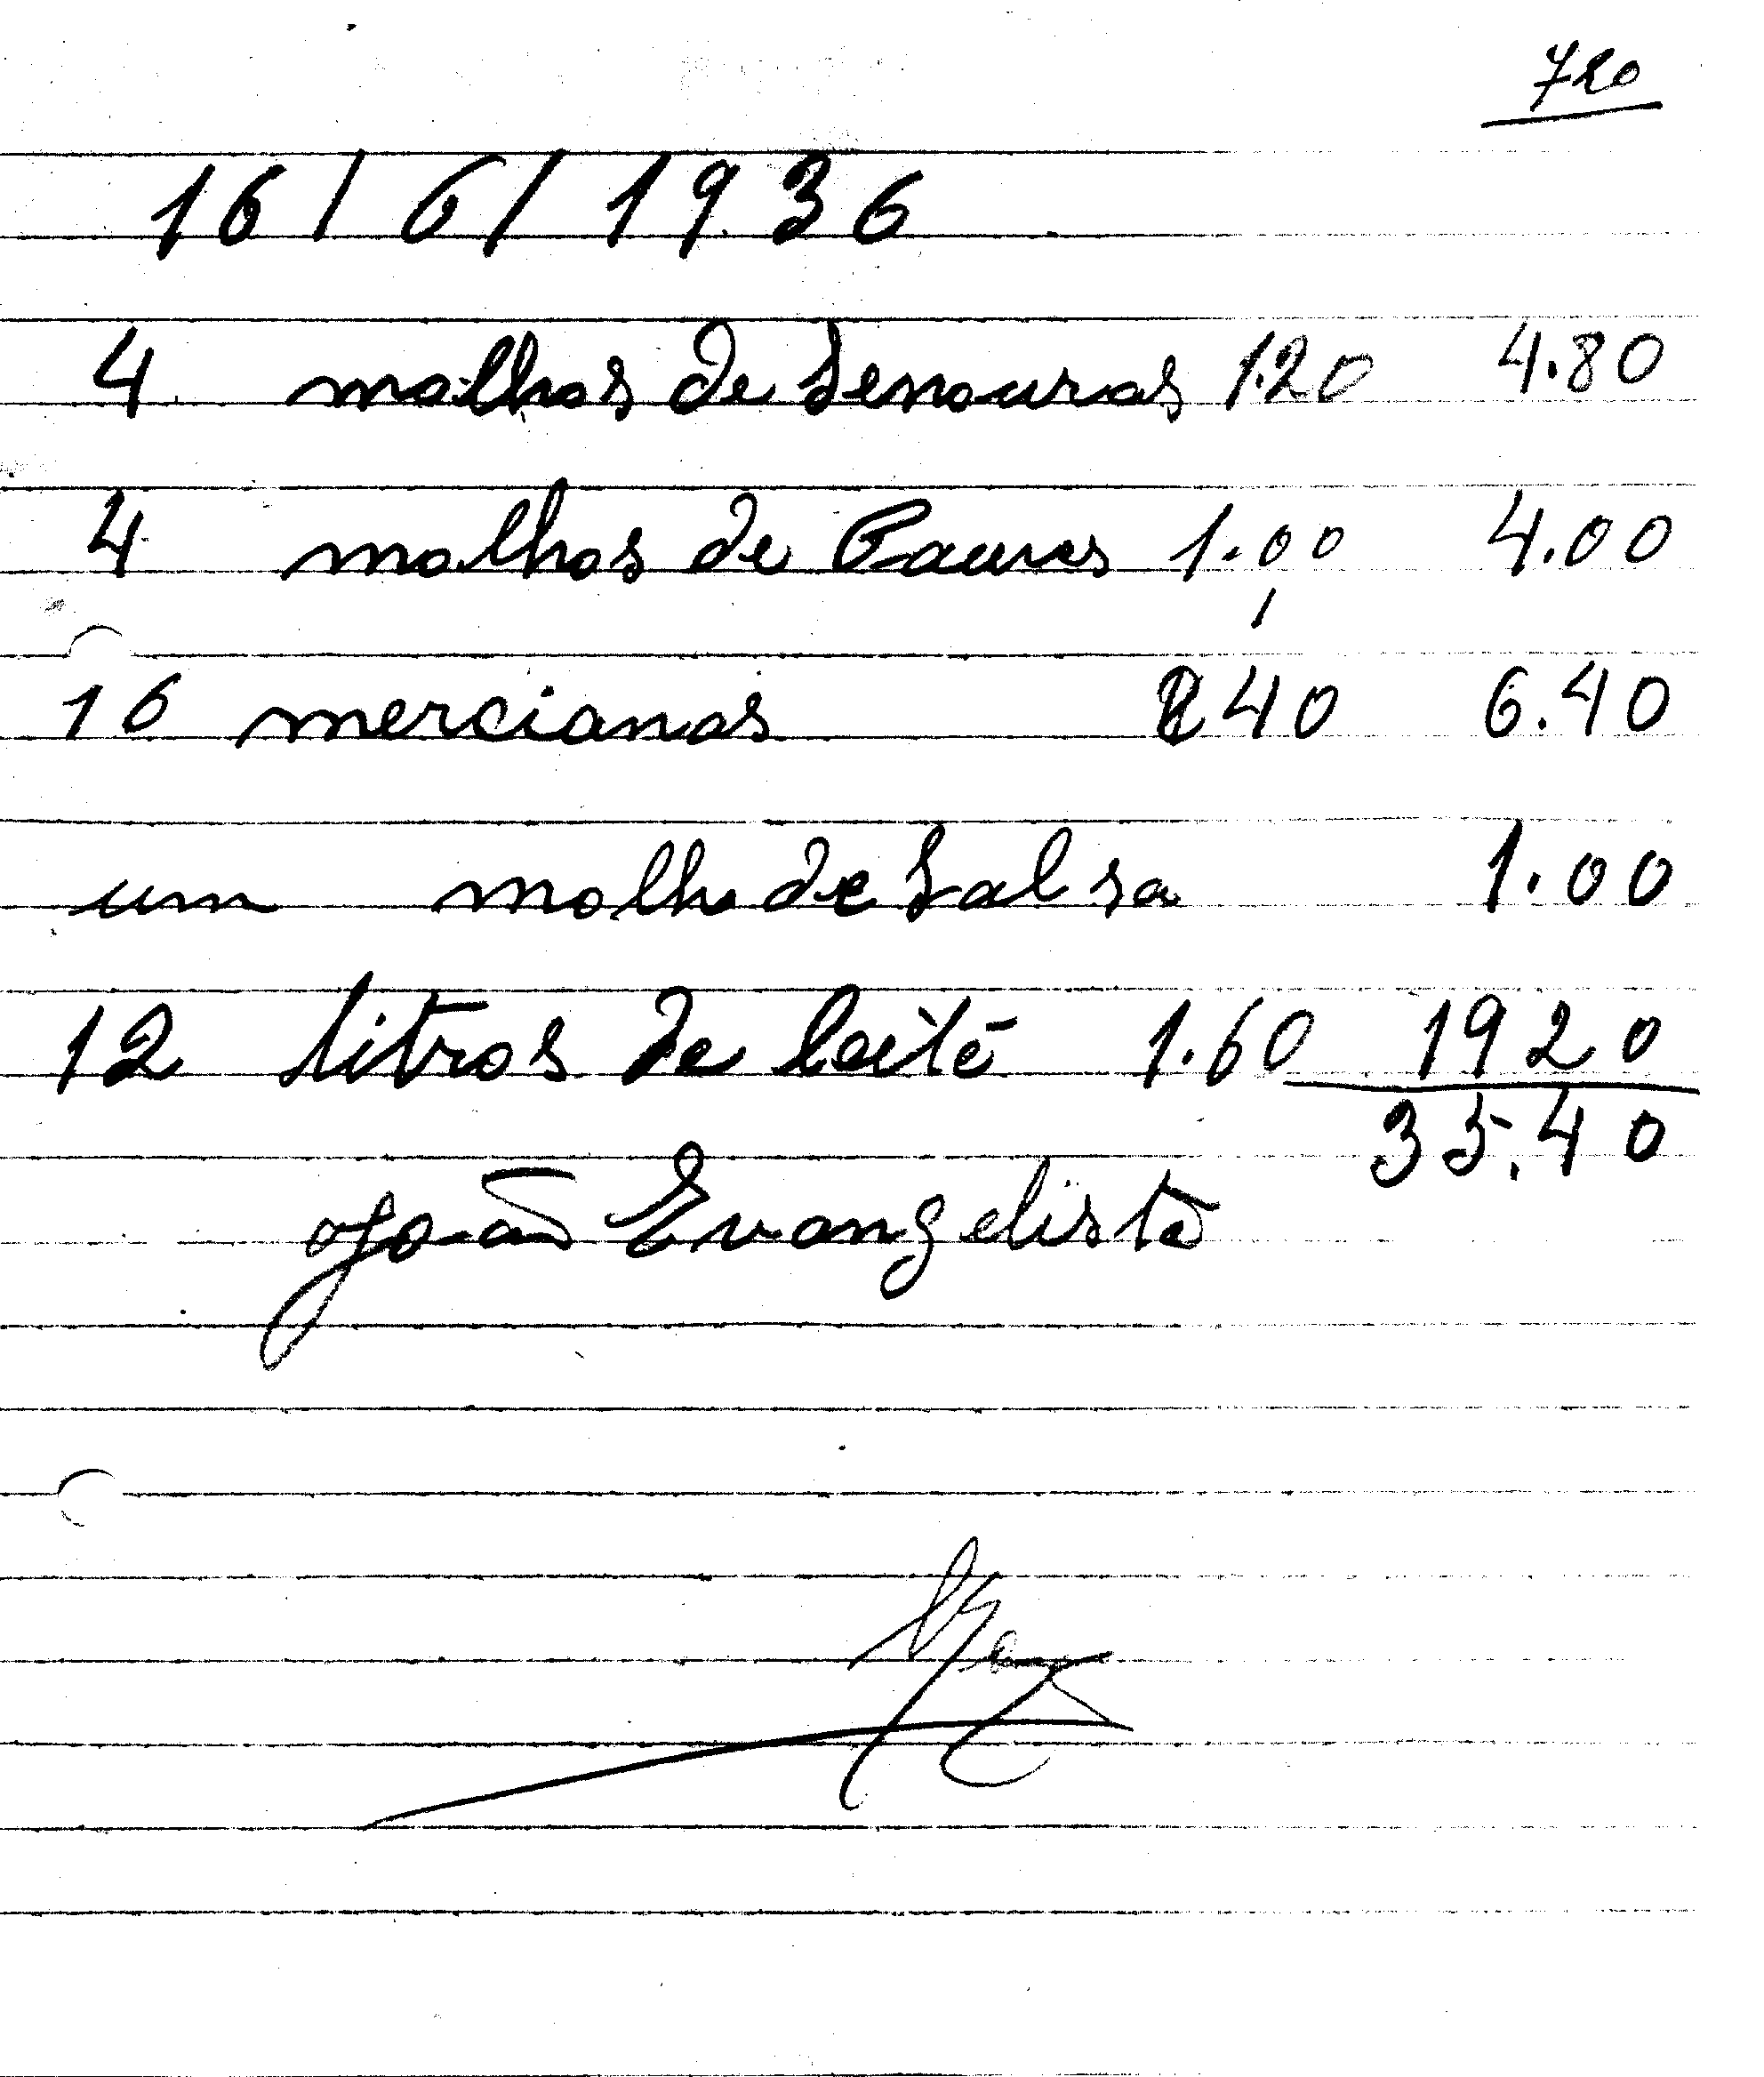 720
16/6/1936
4 molhos de Senouras 1.20 4.80
4 molhos de 1.00 4.00
16 mercianas 40 6.40
um molho de Salsa 1.00
12 litros de leite 1.60 1920
35.40
João Evangelista